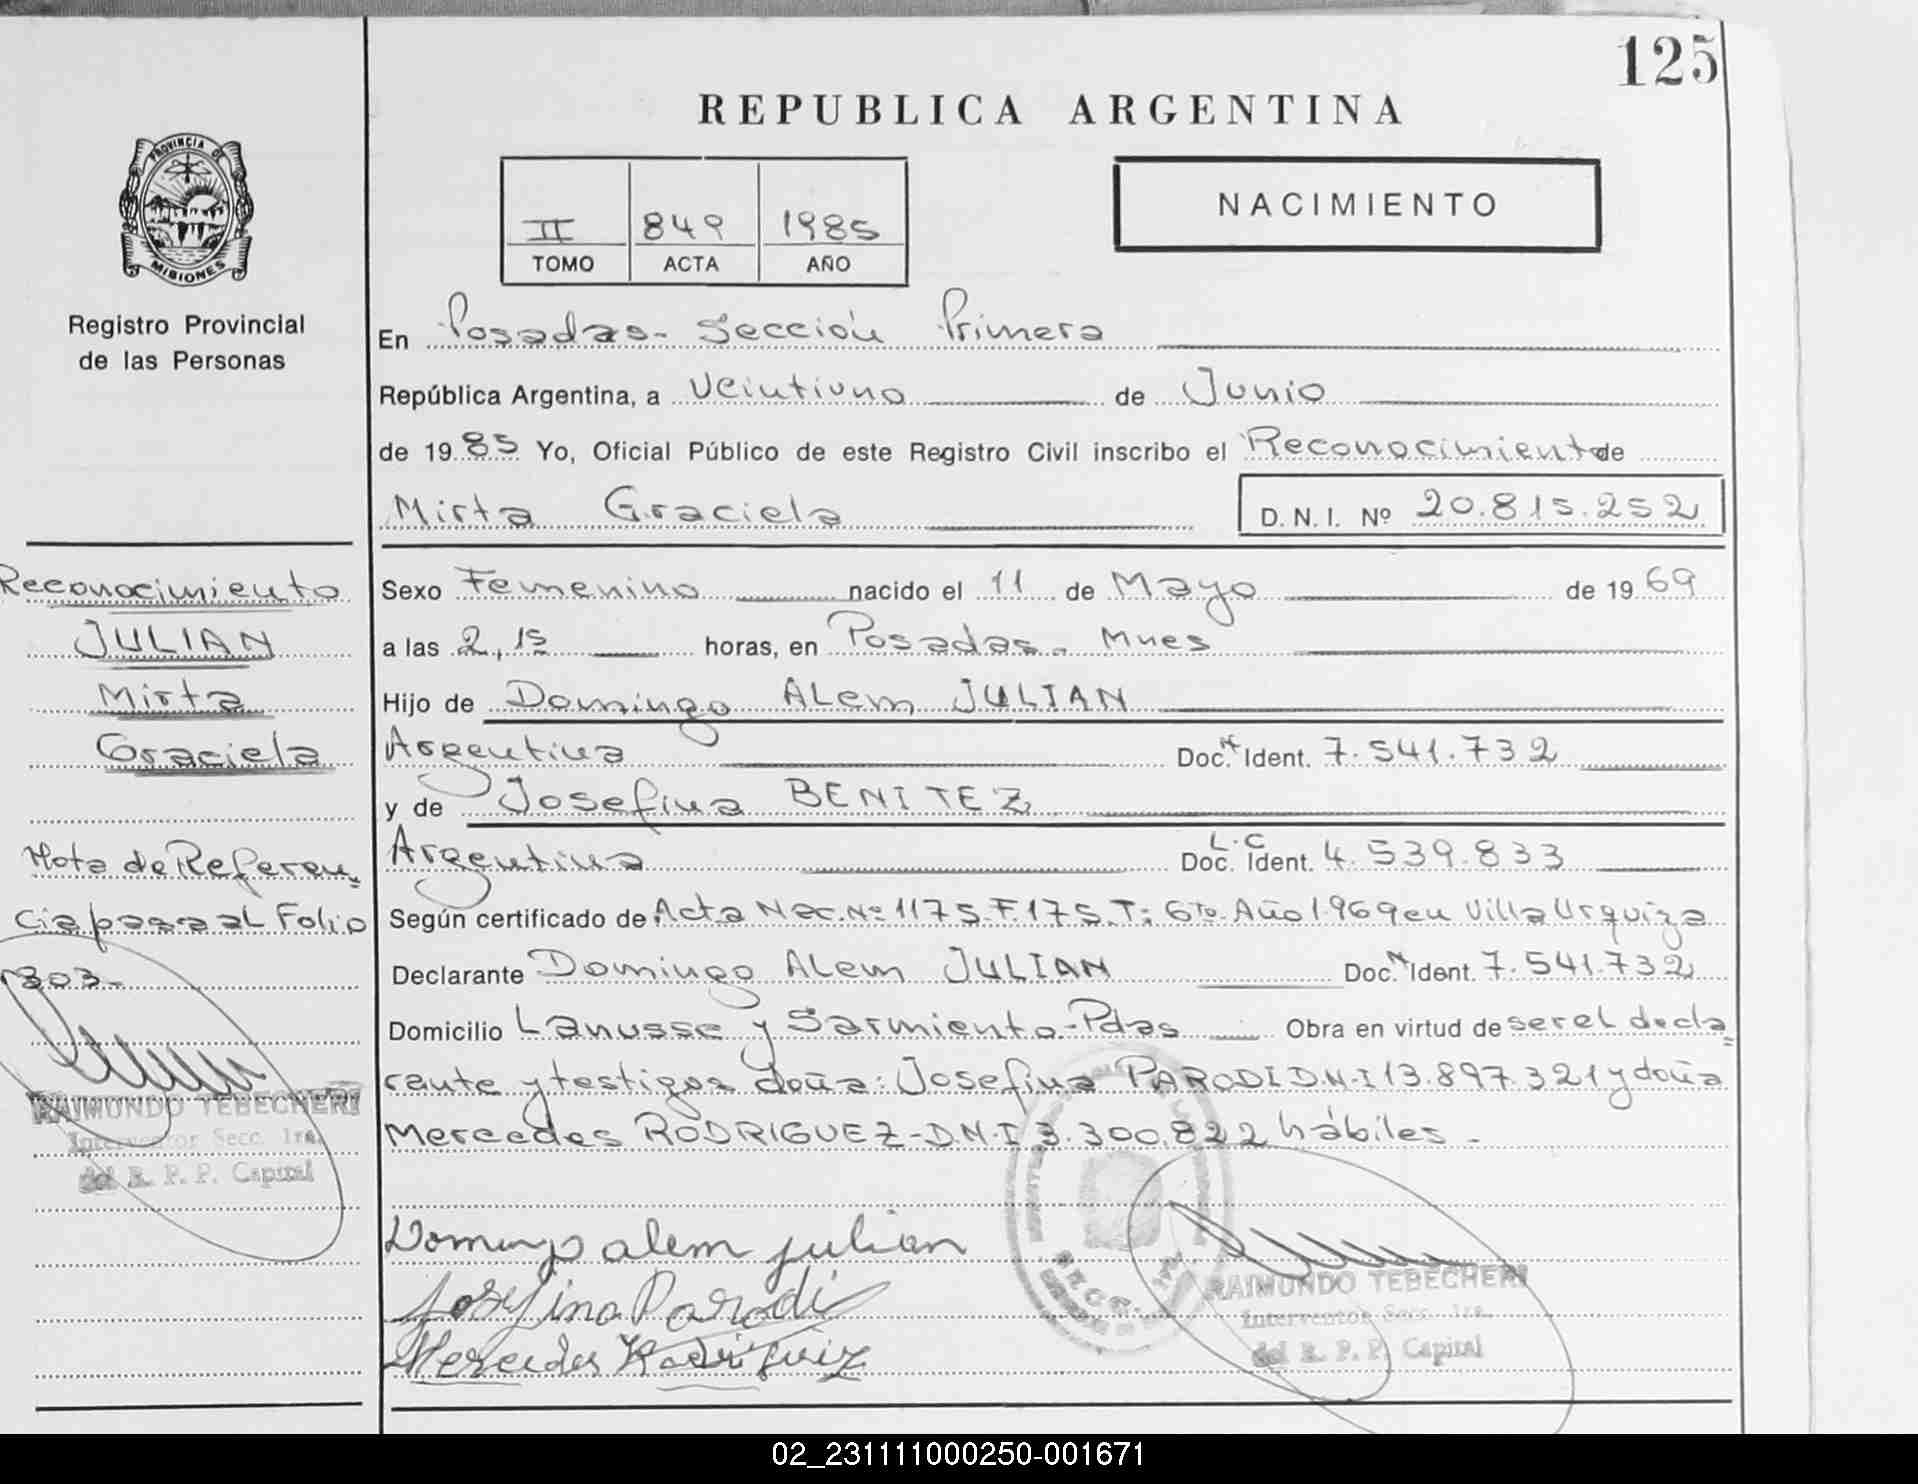 125
REPUBLICA ARGENTINA
PROVINCIA DE
MISIONES
Registro Provincial
de las Personas
II 849 1985
TOMO ACTA AÑO
NACIMIENTO
En Posadas- Sección Primera
República Argentina, a Veintiuno de Junio
de 1985 Yo, Oficial Público de este Registro Civil inscribo el Reconocimiento de
Mirta Graciela D. N. I. Nº 20.815.252
Sexo Femenino nacido el 11 de Mayo de 1969
a las 2,15 horas, en Posadas- Mnes
Hijo de Domingo ALem JULIAN
Argentina Doc. M Ident. 7.541.732
y de Josefina BENITEZ
Argentina Doc. L.C Ident. 4.539.833
Según certificado de Acta Nac. Nº 1175.F.175.T: 6to. Año 1969 en Villa Urquiza
Declarante Domingo ALem JULIAN Doc. M Ident. 7.541.732
Domicilio Lanusse y Sarmiento-Pdas Obra en virtud de ser el decla
rante y testigos doña: Josefina PARODI D.N.I 13.897.321 y doña
Mercedes RODRIGUEZ-D.N.I 3.300.822 hábiles.-
Domingo alem julian
Josefina Parodi
Mercedes Rodriguez
RAIMUNDO TEBECHERI
Interventor Secc. 1ra.
del R. P. P. Capital
Reconocimiento
JULIAN
Mirta
Graciela
Nota de Referen
cia pasa al Folio
303-
RAIMUNDO TEBECHERI
Interventor Secc. 1ra.
del R. P. P. Capital
02_231111000250-001671